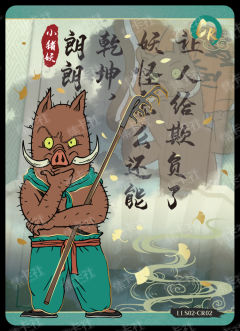 小猪妖
朗朗
乾坤，
妖怪怎么还能
让人给欺负了
LLS02-CR02